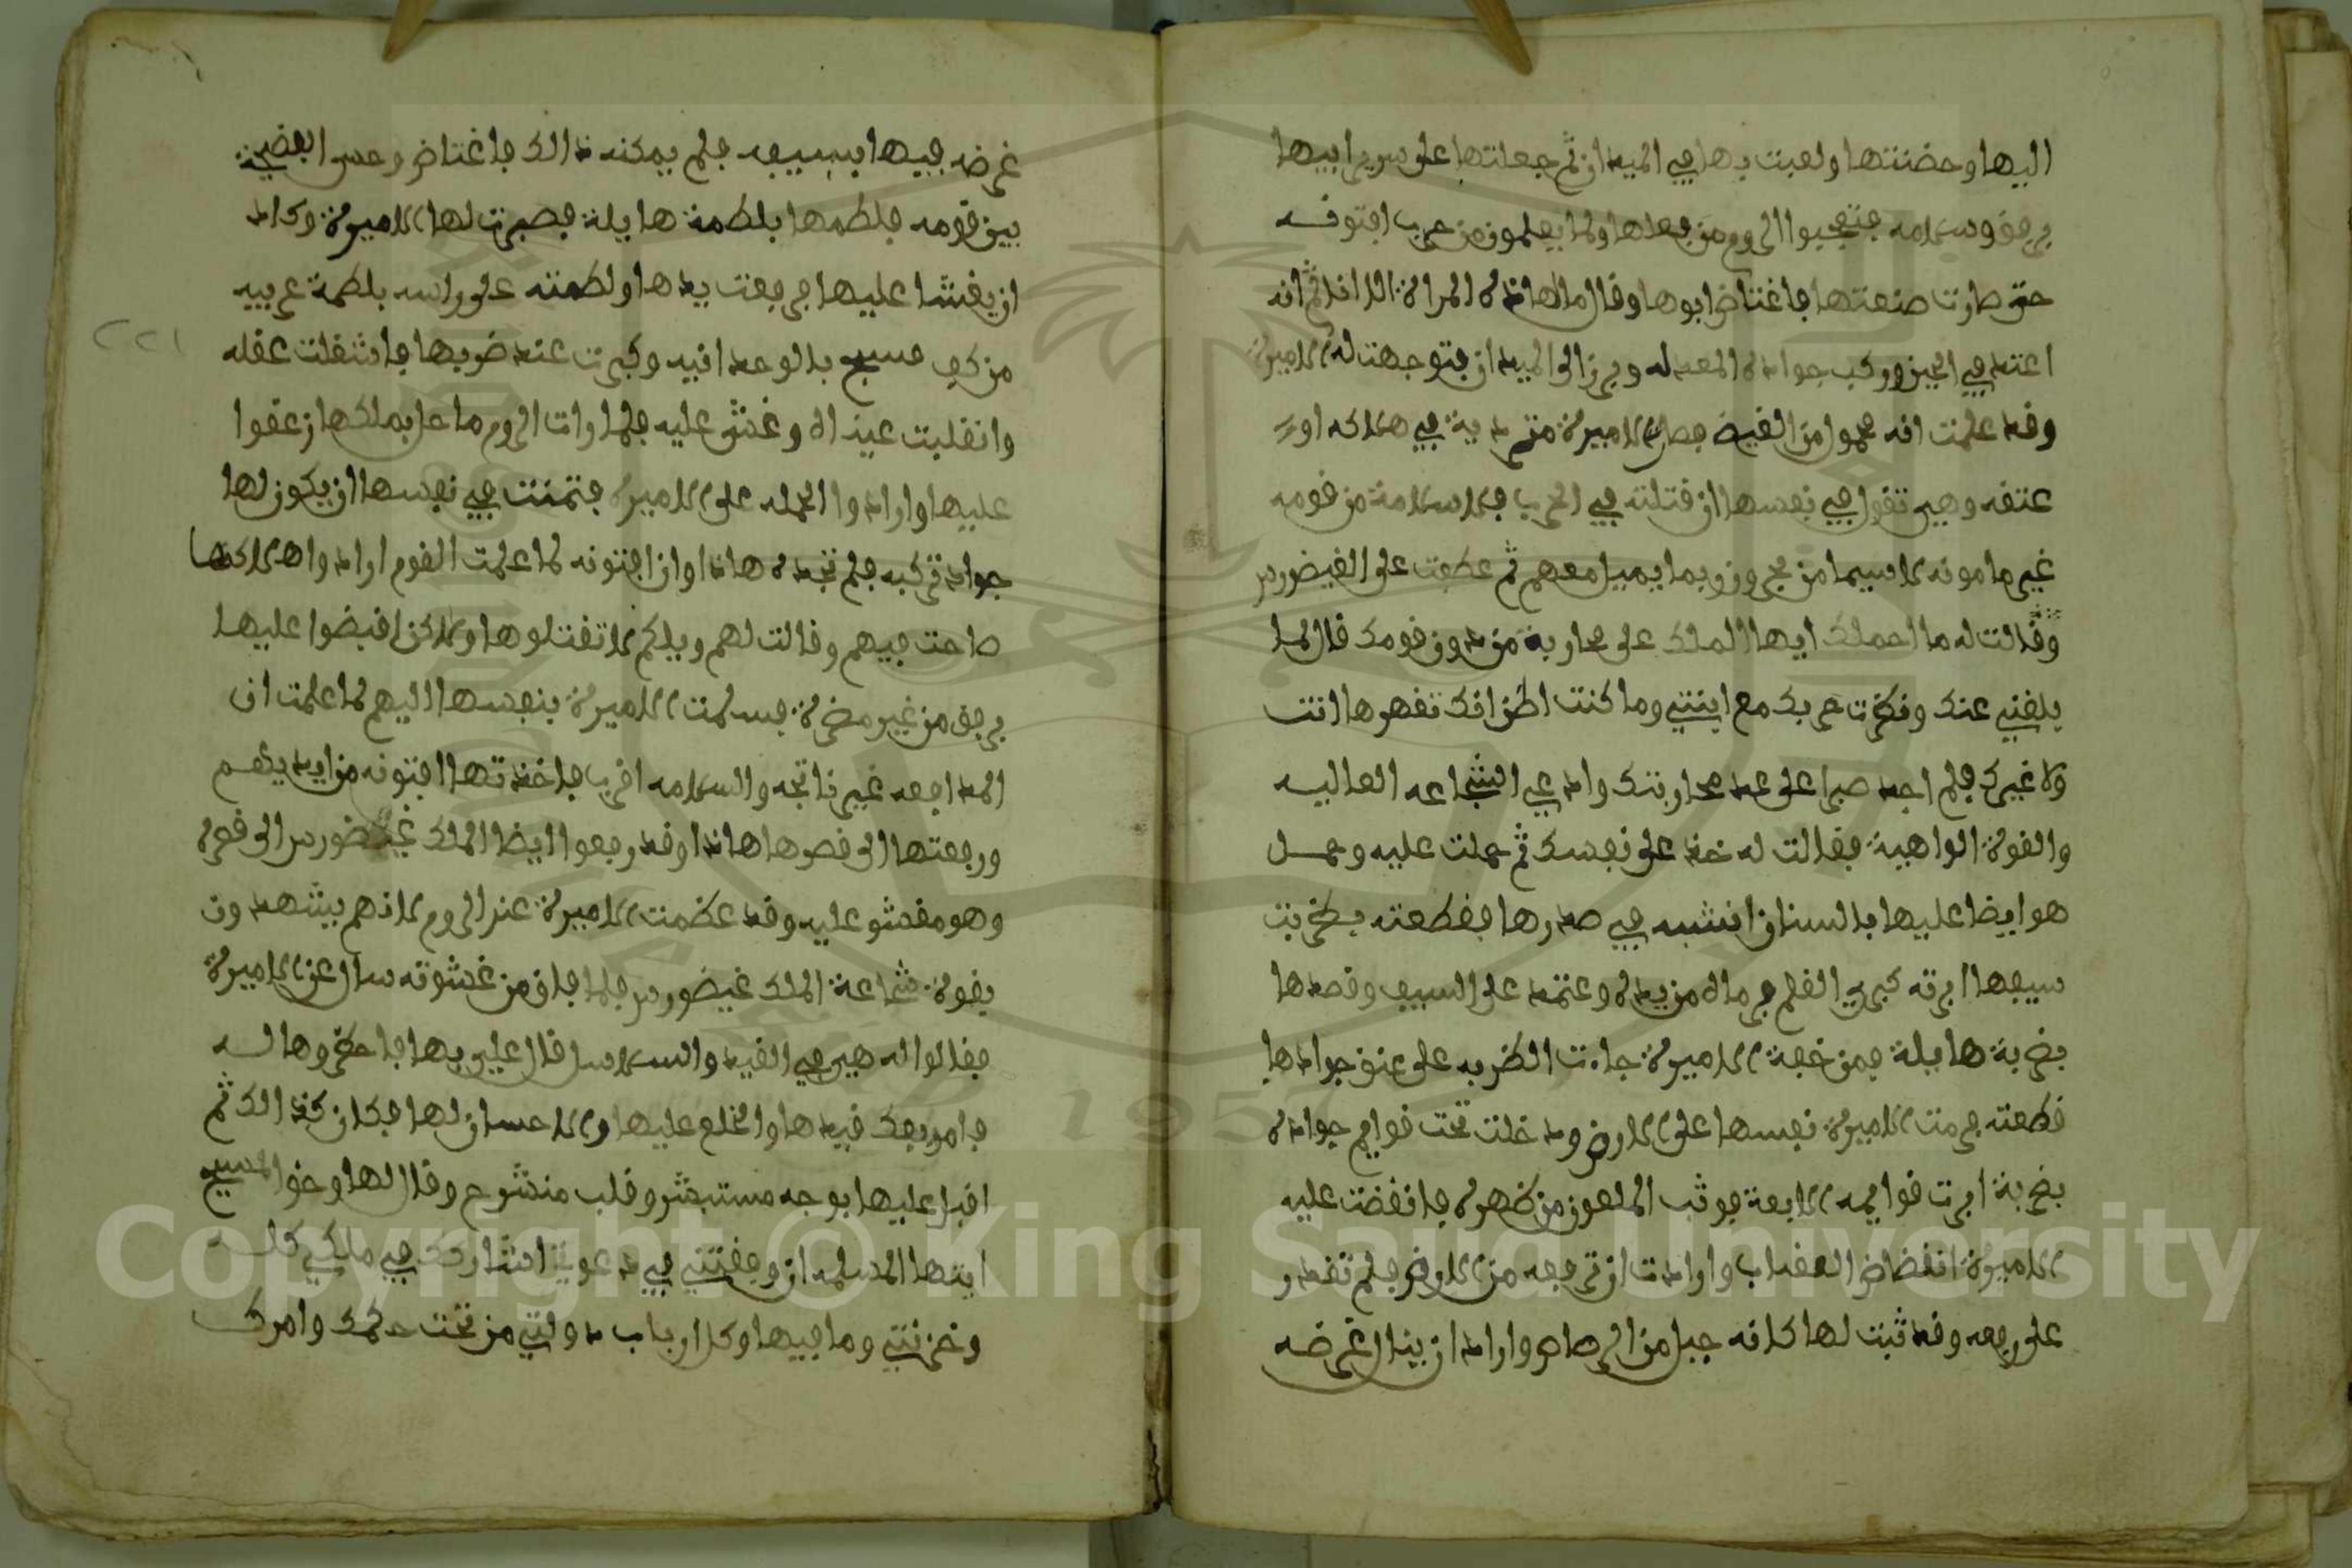 اليها وحضنتها ولعبت بها في الميدان ثم جعلتها على سرير ابيها
برفق وسلامه فتعجبوا الروم من فعلها ولما يعلمون من حرب افتونه
حتى صارت صنعتها فاغتاض ابوها وقال مالهاذه المراة الا اقدا ثم انه
اعتد في الحين وركب جواده المعد له وبرز الى الميدان فتوجهت له الاميرة
وقد علمت انه محمول من الغيض فصارت الاميرة متردية في هلاكه او
عتقه وهي تقول في نفسها ان قتلته في الحرب فلا سلامة من قومه
غير مامونه لا سيما من بحرون وبما يميل معهم ثم عطفت على الغيضورس
وقالت له ما احملك ايها الملك على محاربة من دون قومك قال لما
بلغني عنك ونظرت حربك مع ابنتي وما كنت اظن انك تقهرها انت
ولا غيرك فلم اجد صبرا على عدم محاربتك وانت عي الشجاعه العاليه
والقوة الواهية فقالت له خذ على نفسك ثم حملت عليه وحمل
هو ايضا عليها بالسنان انشبه في صدرها فقطعته بضربت
سيفها ابرته كبري القلم فرماه من يده وعتمد على السيف وقصدها
بضربة هايلة فمن خفة الاميرة جاءت الضربه على عنق جوادها
قطعته فرمت الاميرة نفسها على الارض ودخلت تحت قوايم جواده
بضربة ابرت قوايمه الاربعة فوثب الملعون من ظهره فانقضت عليه
الاميرة انقضاض العقاب وارادت ان ترفعه من الارض فلم تقدر
على رفعه وقد ثبت لها كانه جبل من الرصاص واراد ان ينال غرضه
غرضه فيها بسيفه فلم يمكنه ذالك فاغتاض وحس الفضيحة
بين قومه فلطمها بلطمة هايلة فصبرت لها الاميرة وكاد
ان يغشا عليها فرفعت يدها ولطمته على راسه بلطمة عربيه
من كف مسبح بالوحدانيه وكبرت عند ضربها فاشتغلت عقله
وانقلبت عيناه وغشي عليه فلما رات الروم ما حل بملكها زعقوا
عليها وارادوا الحمله على الاميرة فتمنت في نفسها ان يكون لها
جواد تركبه فلم تجده هاذا وان افتونه لما علمت القوم ارادوا هلاكها
صاحت فيهم وقالت لهم ويلكم لا تقتلوها ولاكن اقبضوا عليها
برفق من غير مضرة فسلمت الاميرة بنفسها اليهم لما علمت ان
المدافعه غير ناتجه والسلامه اقرب فاخذتها افتونه من ايديهم
ورفعتها الى قصرها هاذا وقد رفعوا ايضا الملك غيضورس الى قصره
وهو مغشو عليه وقد عظمت الاميرة عند الروم لانهم يشهدون
بقوة شجاعة الملك غيضورس فلما فاق من غشوته سال عن الاميرة
فقالوا له هي في القيد والسلاسل قال علي بها فاحضروها له
فامر بفك قيدها والخلع عليها والاحسان لها فكان كذالك ثم
اقبل عليها بوجه مستبشر وقلب منشرح وقال لها وحق المسيح
ايتها المسلمه ان وفقتني في دعوتي اشاركك في ملكي كله
وخزنتي وما فيها وكل ارباب دولتي من تحت حكمك وامرك
٢٢١
Copyright © King Saud University
1957